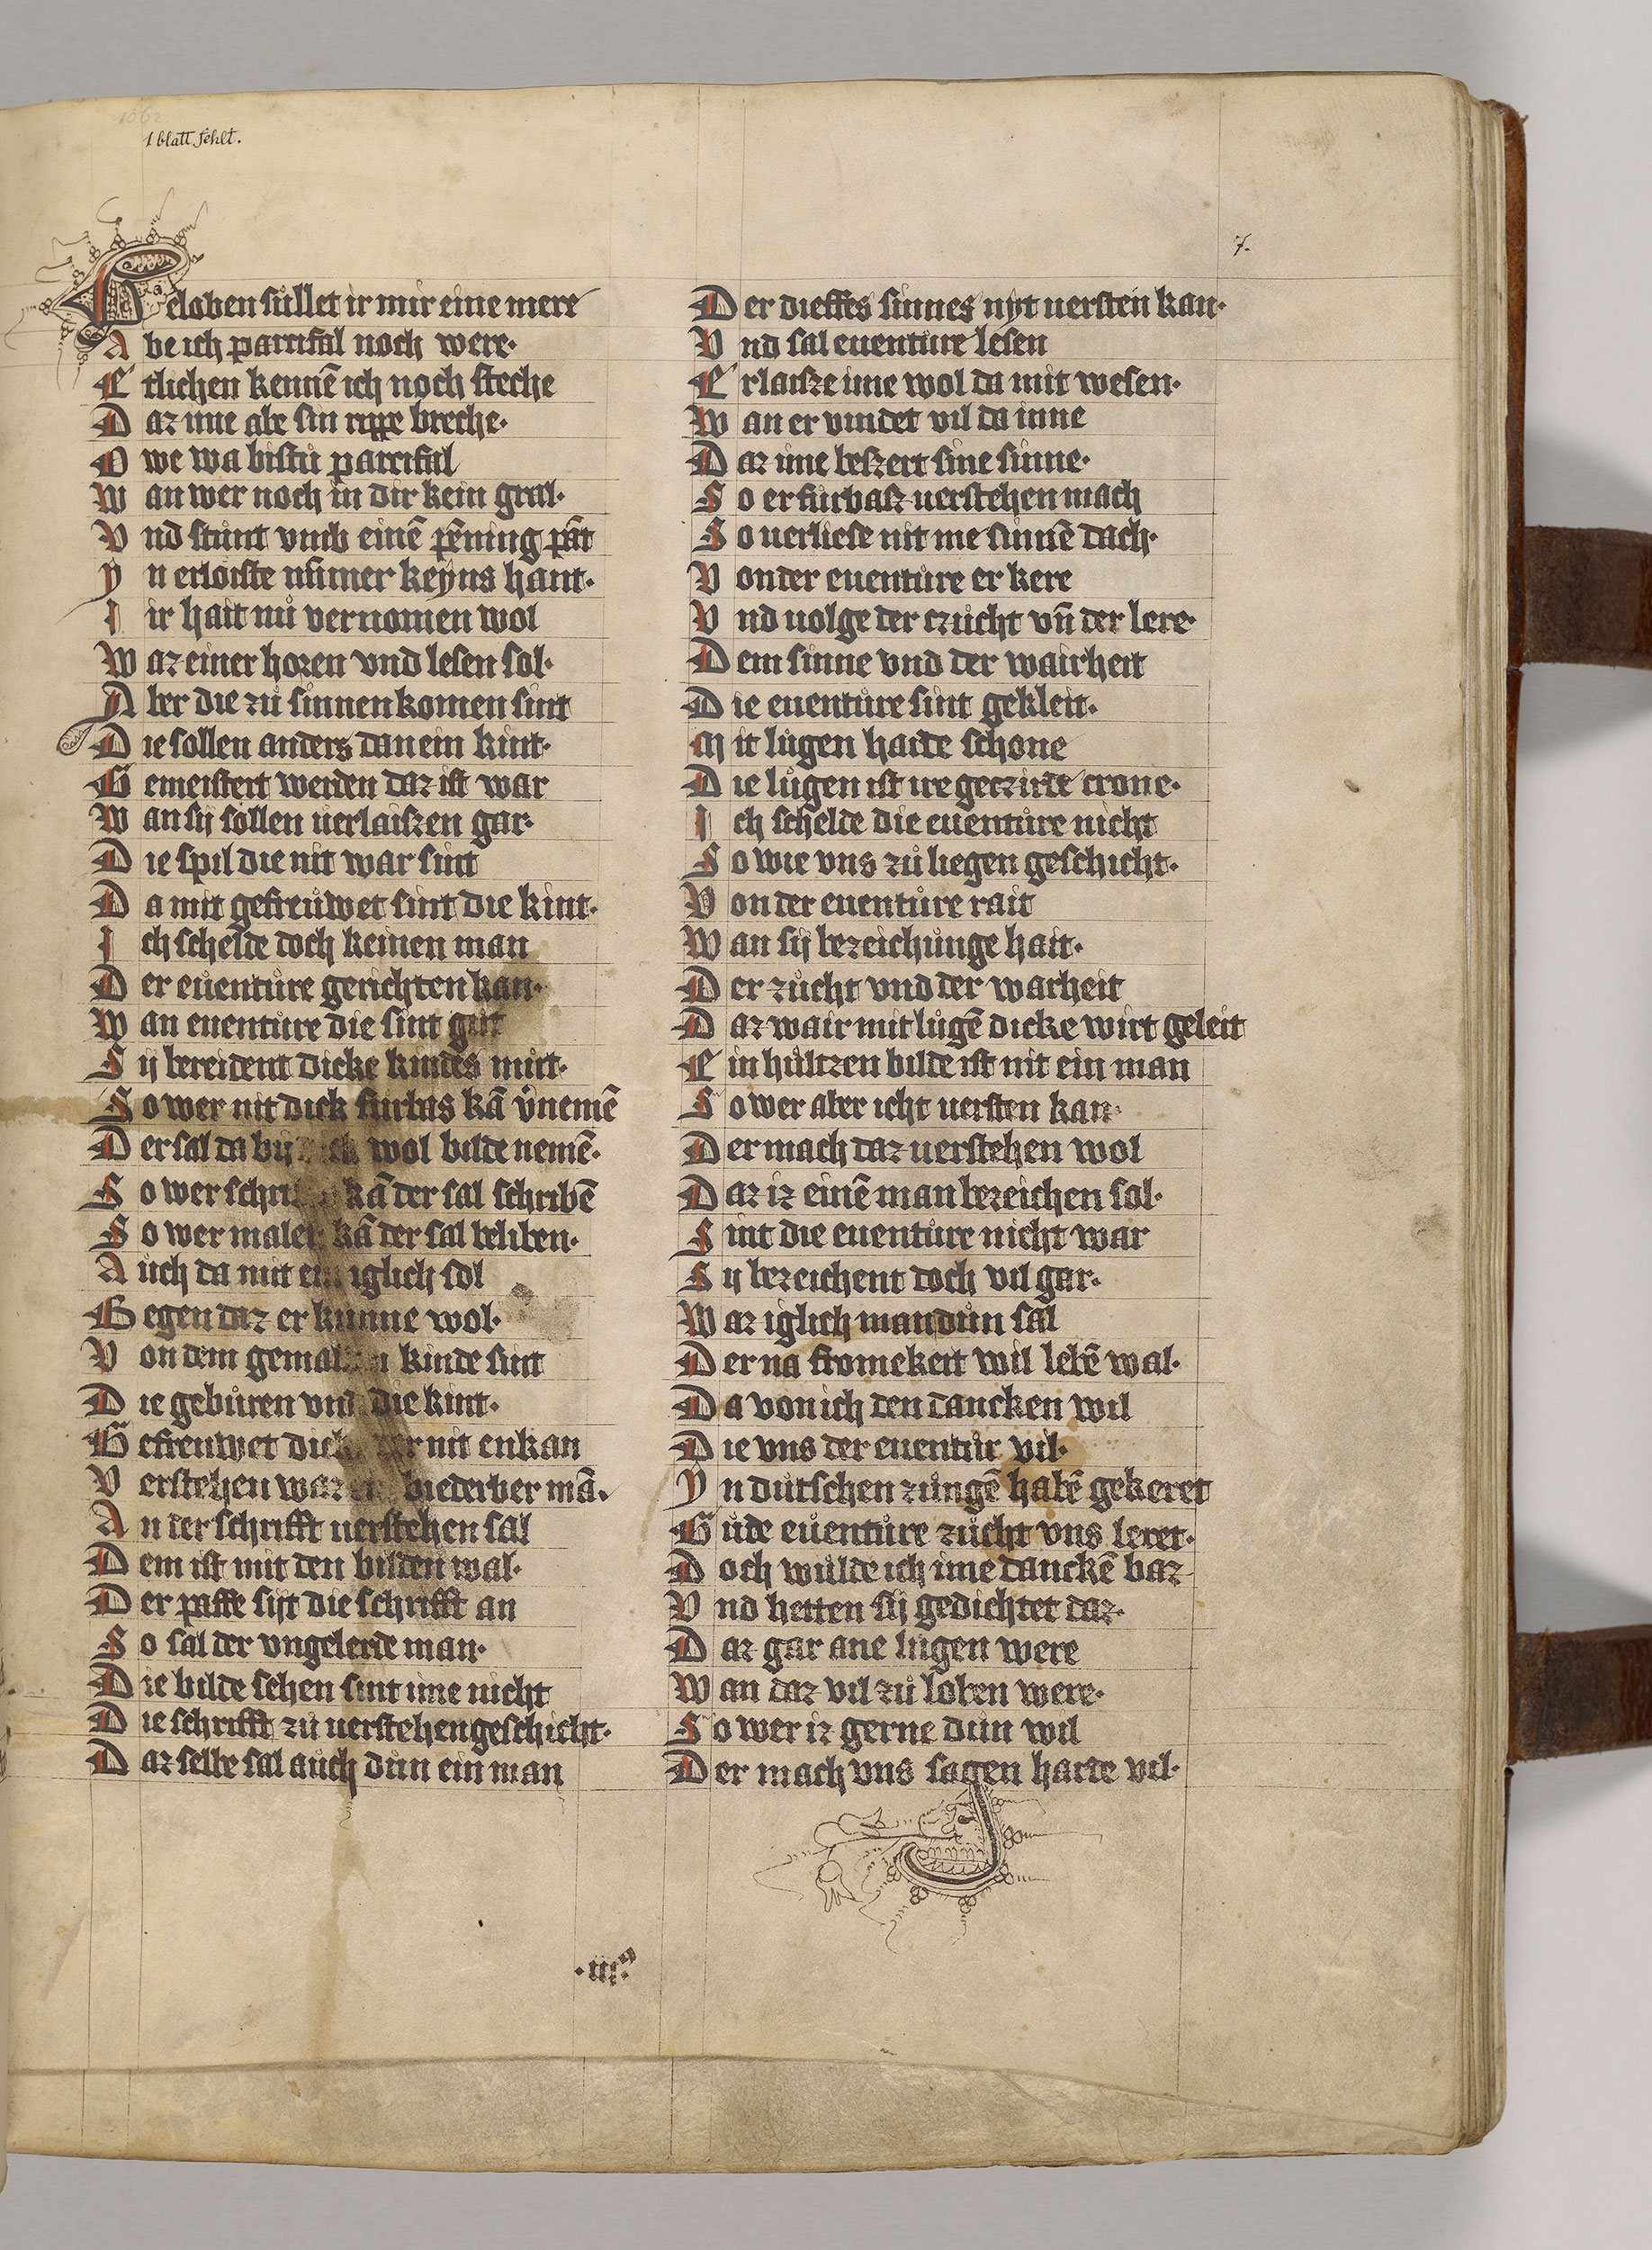 1 blatt fehlt.
7.
Geloben sůllet ir mir eine mere
Abe ich parcifal noch were·
Etlichen kennē ich noch steche
Daz ime abe sin rippe breche·
Owe wa bistů parcifal
Wan wer noch in dir kein gral·
Vnd stůnt vmb einē pēning pāt
Yn erloiste nūmer keyns hant·
Iir hait nů vernomen wol
Waz einer horen vnd lesen sol·
Aber die zů sinnen komen sint
Die sollen anders dan ein kint·
Gemeistert werden daz ist war
Wan sij sollen uerlaiszen gar·
Die spil die nit war sint
Da mit gefreůwet sint die kint·
Ich schelde doch keinen man
Der euentůre gerichten kan·
Wan euentůre die sint gut
Sij bereident dicke kindes můt·
So wer nit dick fůrbas kā v̄nemē
Der sal da bij wol bilde nemē·
So wer kā der sal schribē
So wer malen kā der sal beliben·
Auch da mit ein iglich sol
Gegen daz er kunne wol·
Von dem gemalten kinde sint
Die gebůren vnd die kint·
Gefreuwet dick der nit enkan
Verstehen waz ein biederber mā·
An der schrifft uerstehen sal
Dem ist mit den bilden wal·
Der paffe sijt die schrifft an
So sal der vngelerde man·
Die bilde sehen sint ime nicht
Die schrifft zů uerstehen geschicht·
Daz selbe sal aůch důn ein man
Der dieffes sinnes nyt uersten kan·
Vnd sal euentůre lesen
Erlaisze ime wol da mit wesen·
Wan er vindet vil da inne
Daz ime beszert sine sinne·
So er fůrbasz uerstehen mach
So uerliese nit me sinnē dach·
Von der euentůre er kere
Vnd uolge der czůcht vn̄ der lere·
Dem sinne vnd der wairheit
Die euentůre sint gekleit·
Mit lůgen harde schone
Die lůgen ist ire geczirde crone·
Ich schelde die euentůre nicht
So wie vns zů liegen geschicht·
Von der euentůre rait
Wan sij bezeichůnge hait·
Der zůcht vnd der warheit
Daz wair mit lůgē dicke wirt geleit
Ein hůltzen bilde ist nit ein man
So wer aber icht uersten kan·
Der mach daz uerstehen wol
Daz iz einē man bezeichen sol·
Sint die euentůre nicht war
Sij bezeichent doch vil gar·
Waz iglich man důn sal
Der na fromekeit wil lebē wal·
Da von ich den dancken wil
Die vns der euentůr vil·
Yn důtschen zůngē habē gekeret
Gůde eůentůre zůcht vns leret·
Doch wůlde ich ime danckē baz
Vnd hetten sij gedichtet daz·
Daz gar ane lůgen were
Wan daz vil zů loben were·
So wer iz gerne důn wil
Der mach vns sagen harte vil·
·iijꝰ·